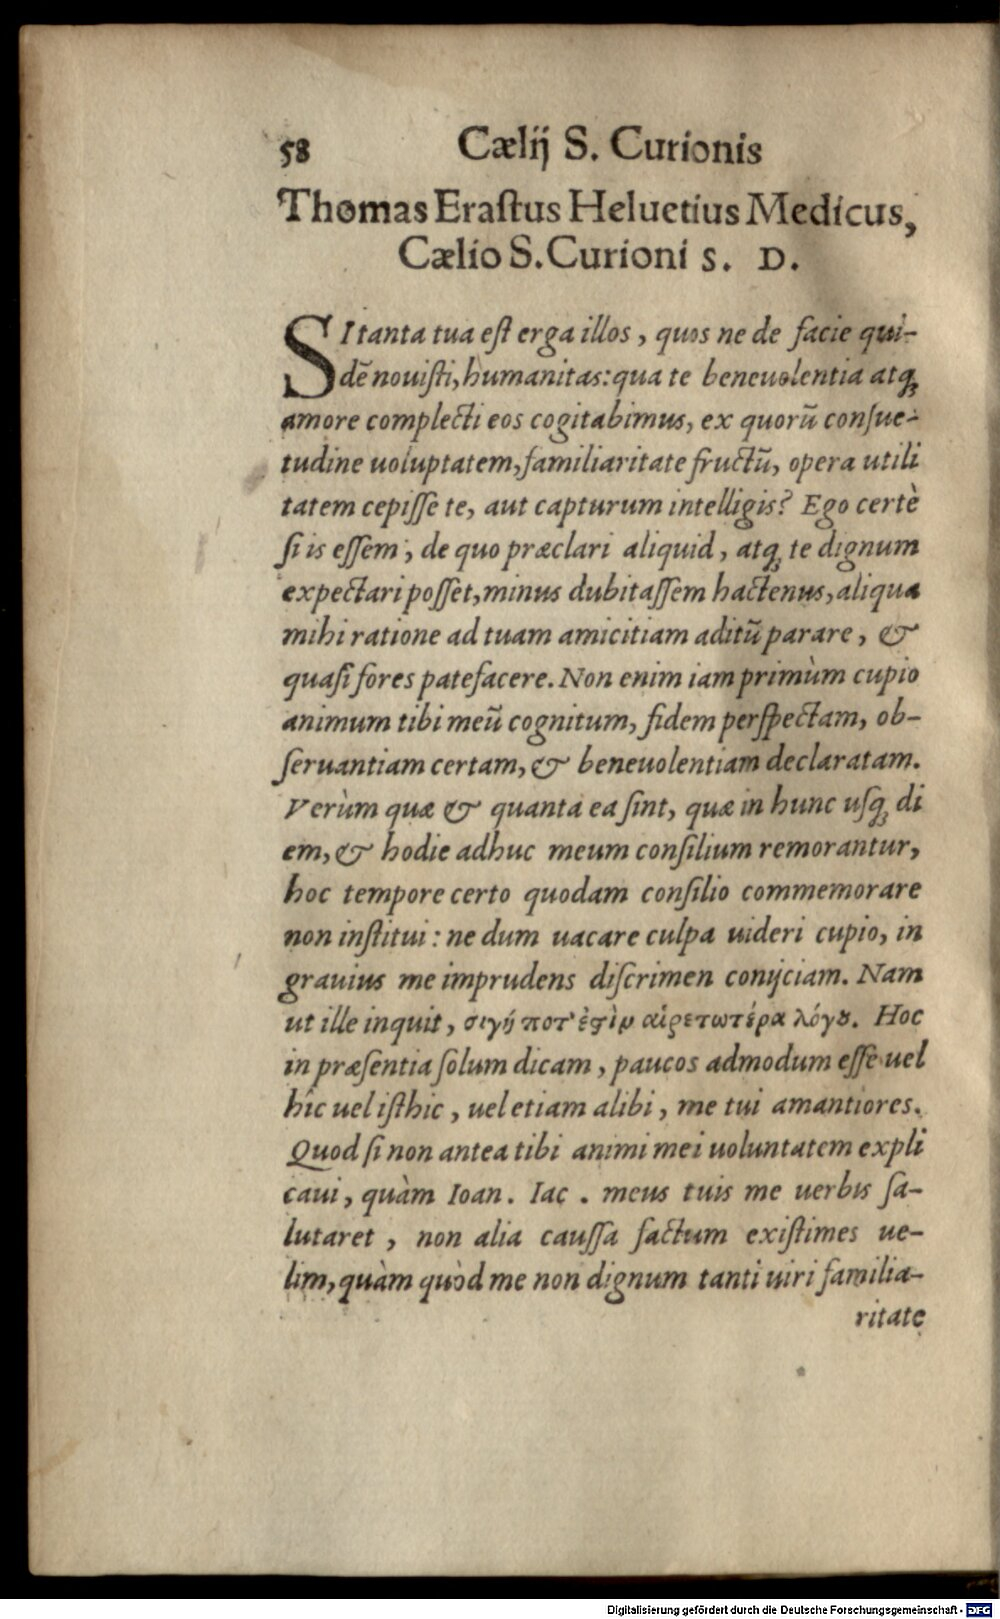 58 Cælij S. Curionis
Thomas Eraſtus Heluetius Medicus,
Cælio S. Curioni S. D.
SI tanta tua eſt erga illos, quos ne de facie qui-
dē nouiſti, humanitas: qua te beneuolentia atq́;
amore complecti eos cogitabimus, ex quorū conſue-
tudine uoluptatem, familiaritate fructū, opera utili
tatem cepiſſe te, aut capturum intelligis? Ego certè
ſi is eſſem, de quo præclari aliquid, atq́; te dignum
expectari poſſet, minus dubitaſſem hactenus, aliqua
mihi ratione ad tuam amicitiam aditū parare, &
quaſi fores patefacere. Non enim iam primùm cupio
animum tibi meū cognitum, fidem perſpectam, ob-
ſeruantiam certam, & beneuolentiam declaratam.
Verùm quæ & quanta ea ſint, quæ in hunc uſq́; di
em, & hodie adhuc meum conſilium remorantur,
hoc tempore certo quodam conſilio commemorare
non inſtitui: ne dum uacare culpa uideri cupio, in
grauius me imprudens diſcrimen conijciam. Nam
ut ille inquit, σιγή ποτ' ἐςὶν αἱρετωτέρα λόγȣ. Hoc
in præſentia ſolum dicam, paucos admodum eſſe uel
hîc uel iſthic, uel etiam alibi, me tui amantiores.
Quod ſi non antea tibi animi mei uoluntatem expli
caui, quàm Ioan. Iac. meus tuis me uerbis ſa-
lutaret, non alia cauſſa factum exiſtimes ue-
lim, quàm quòd me non dignum tanti uiri familia-
ritate
Digitalisierung gefördert durch die Deutsche Forschungsgemeinschaft - DFG